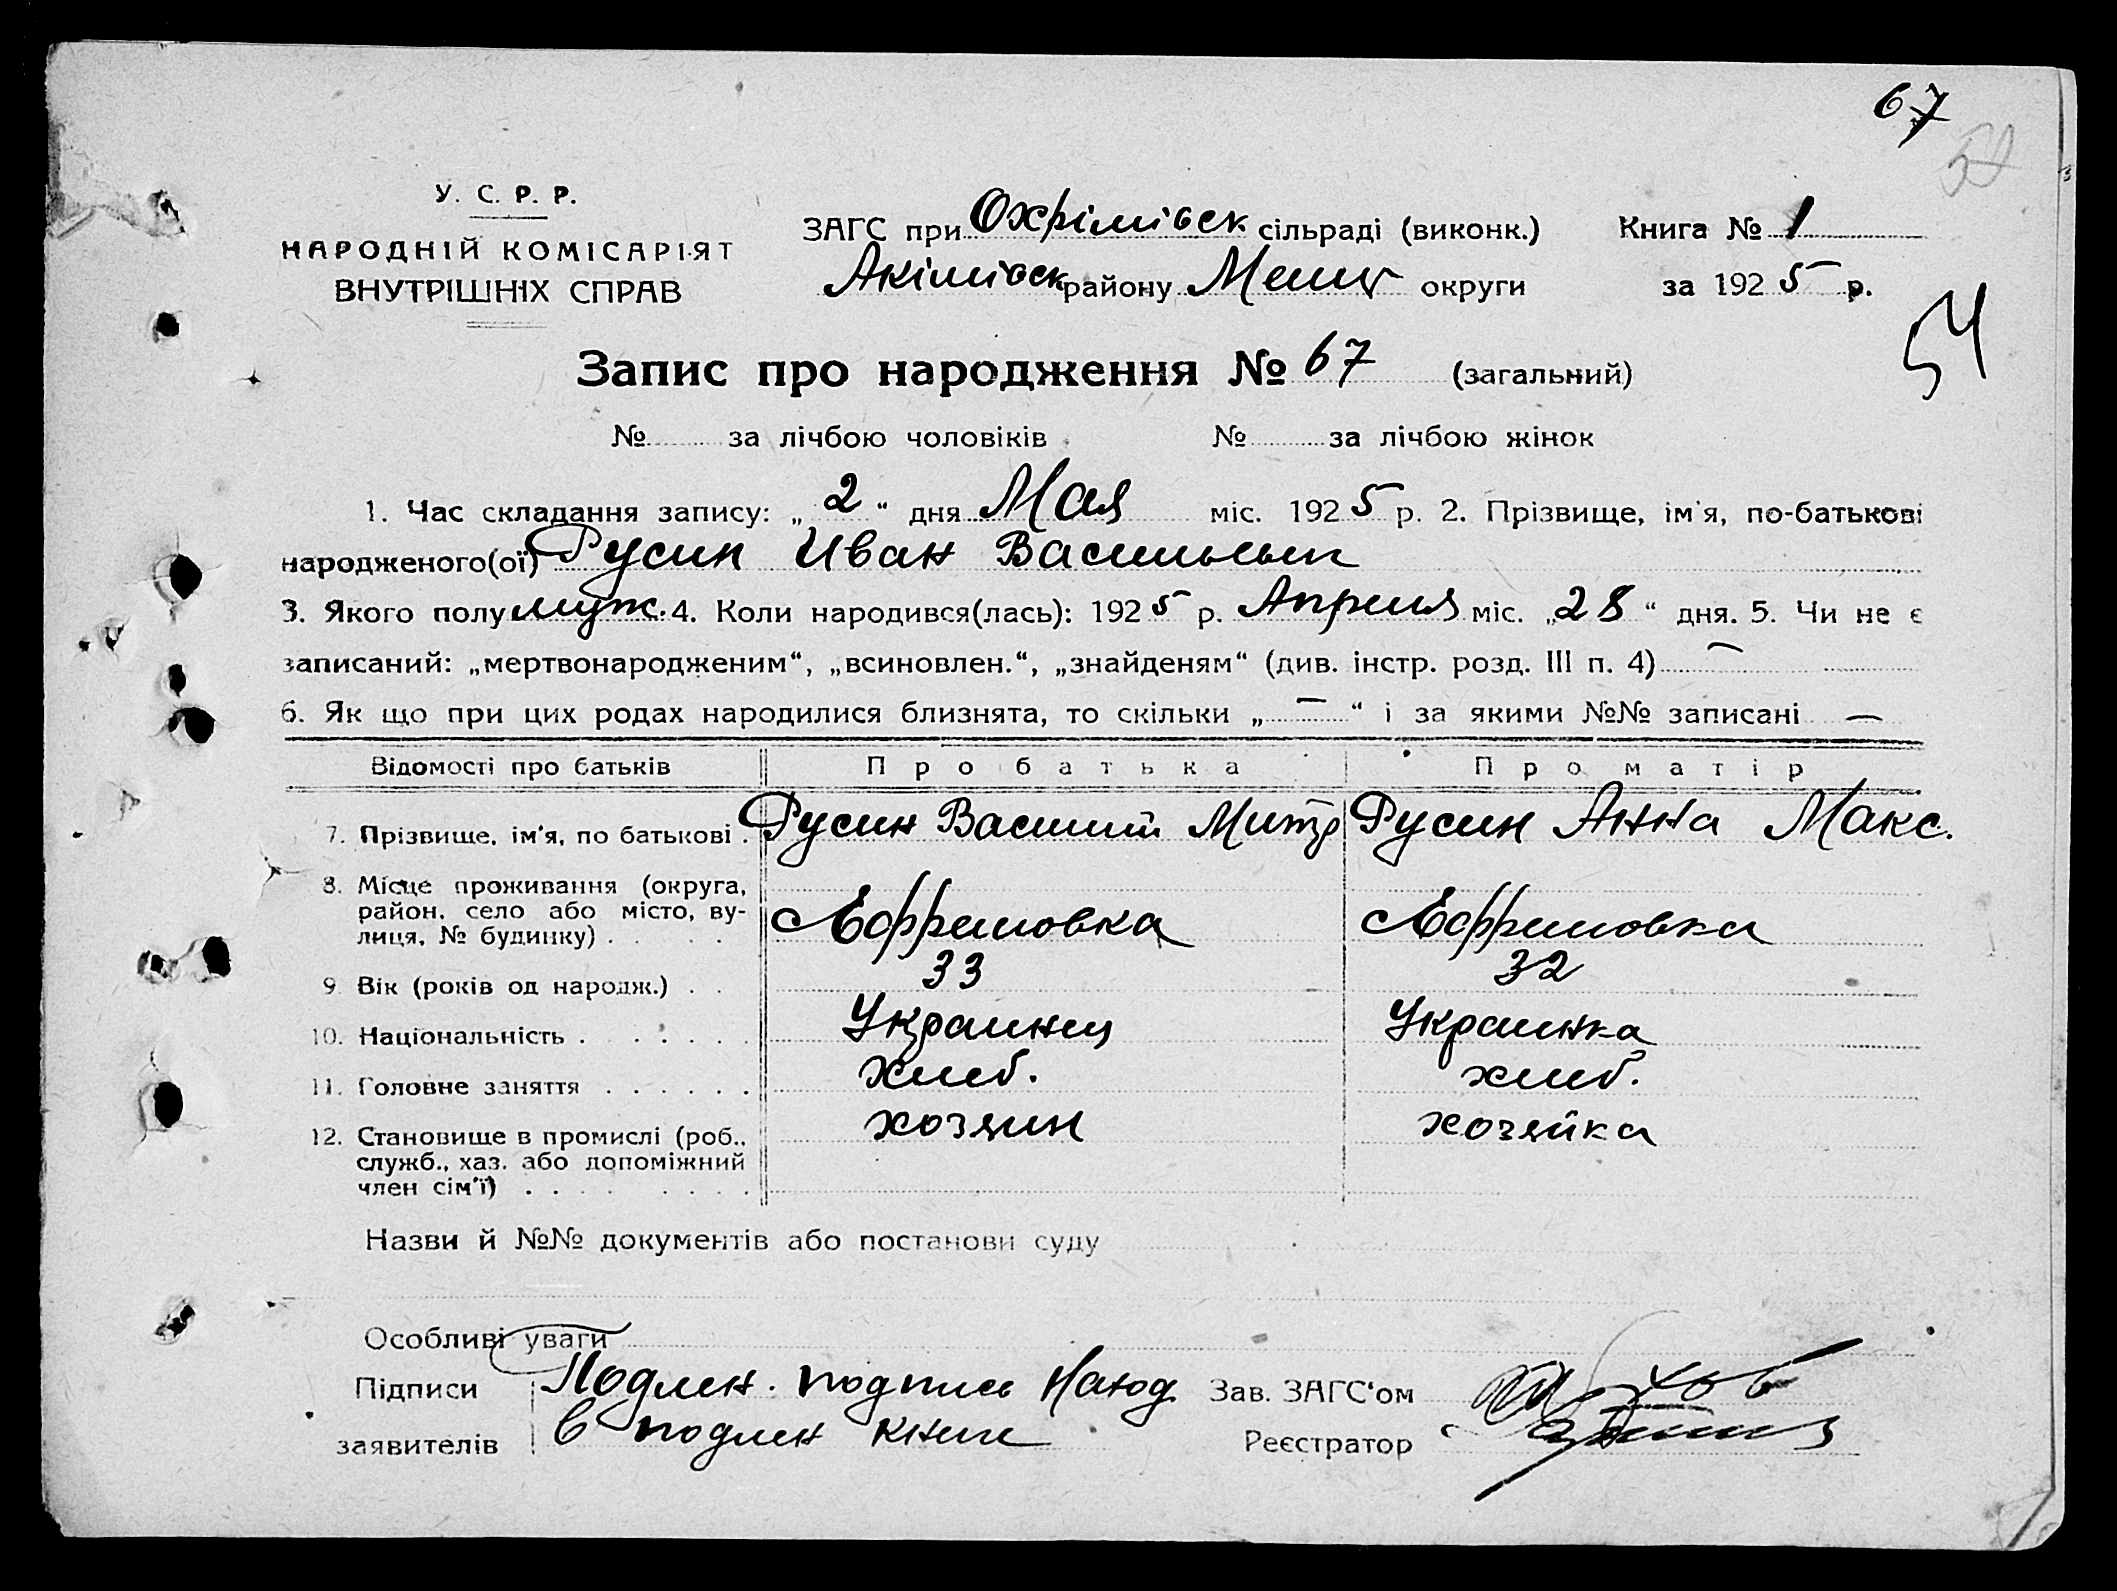 67
У. С. Р. Р.
НАРОДНІЙ КОМІСАРІЯТ
ВНУТРІШНІХ СПРАВ
ЗАГС при Охрімівськ сільраді (виконк.) Книга № 1
Акімівськ району Меліт округи за 1925 р.
54
Запис про народження № 67 (загальний)
№ за лічбою чоловіків № за лічбою жінок
1. Час складання запису: „2“ дня Мая міс. 1925 р. 2. Прізвище, ім'я, по-батькові
народженого(ої) Русин Иван Васильев
3. Якого полу муж. 4. Коли народився(лась): 1925 р. Апреля міс. „28“ дня. 5. Чи не є
записаний: „мертвонародженим“, „всиновлен.“, „знайденям“ (див. інстр. розд. III п. 4) —
6. Як що при цих родах народилися близнята, то скільки „—“ і за якими №№ записані —
Відомості про батьків Про батька Про матір
7. Прізвище, ім'я, по батькові . Русин Василий Митр Русин Анна Макс.
8. Місце проживання (округа,
район, село або місто, ву-
лиця, № будинку) . . . . Ефремовка Ефремовка
9. Вік (років од народж.) . . 33 32
10. Національність . . . . . . Украинец Украинка
11. Головне заняття . . . . . . хлеб. хлеб.
12. Становище в промислі (роб., хозяин хозяйка
служб., хаз. або допоміжний
член сім'ї) . . . . . . . .
Назви й №№ документів або постанови суду
Особливі уваги
Підписи Подлен. подпись Наход Зав. ЗАГС'ом
заявителів в подлен книге Реєстратор